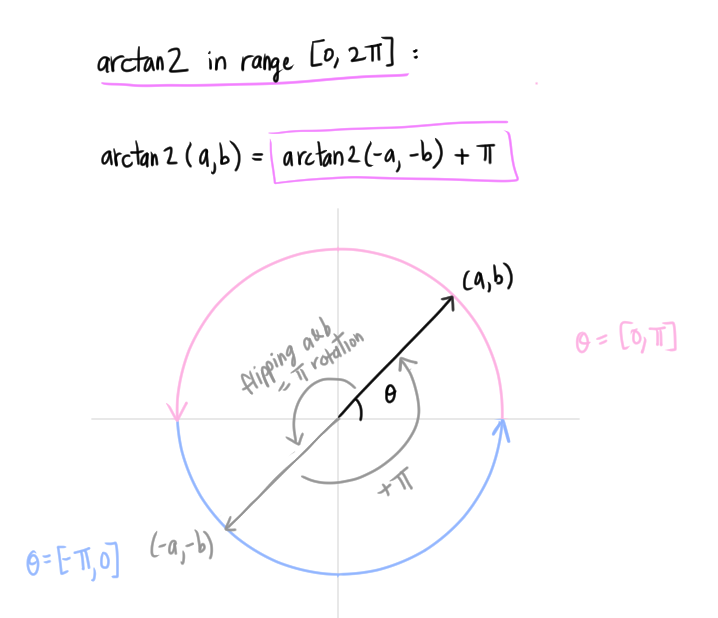 arctan2 in range [0, 2π] :
arctan2 (a,b) = arctan2(-a, -b) + π
(a,b)
flipping a&b
= π rotation
θ = [0,π]
θ
+π
(-a,-b)
θ=[-π,0]